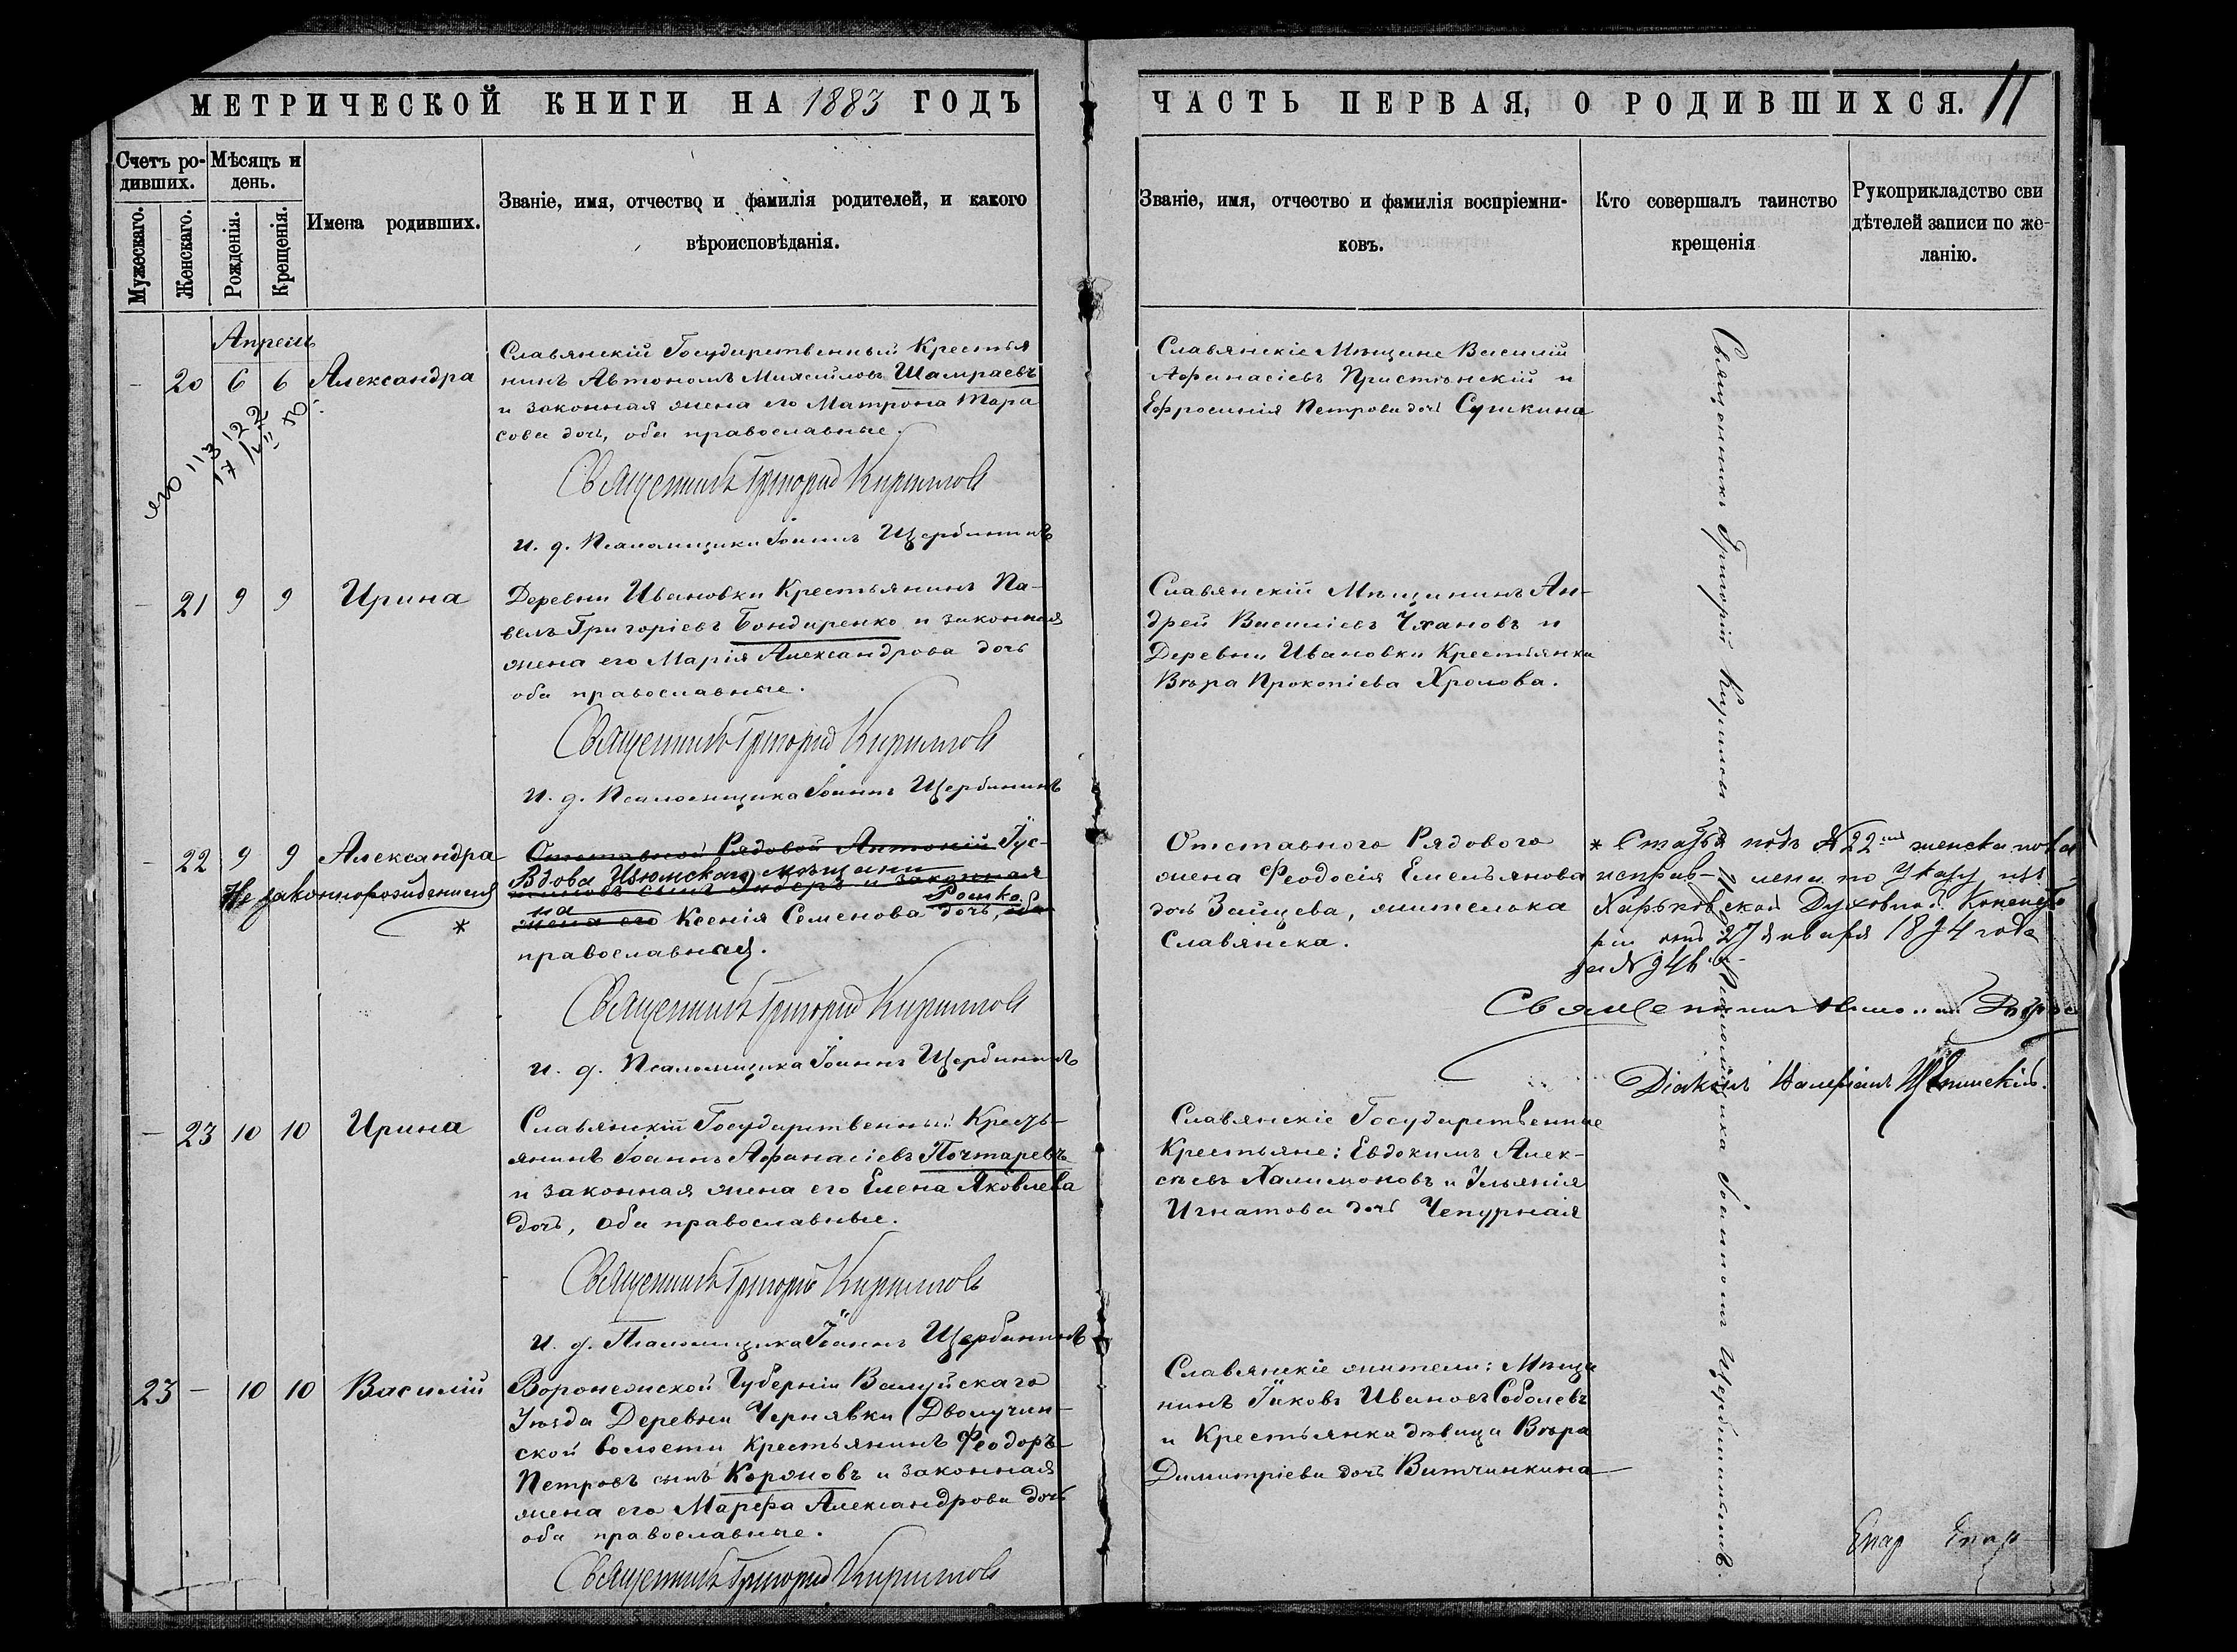 МЕТРИЧЕСКОЙ КНИГИ НА 1883 ГОДЪ
ЧАСТЬ ПЕРВАЯ, О РОДИВШИХСЯ. 11
Счетъ ро-
дившихъ.
Мужескаго.
Женскаго.
Мѣсяцъ и
день.
Рожденія.
Крещенія.
Имена родившихъ.
Званіе, имя, отчество и фамилія родителей, и какого
вѣроисповѣданія.
Званіе, имя, отчество и фамилія воспріемни-
ковъ.
Кто совершалъ таинство
крещенія
Рукоприкладство сви
дѣтелей записи по же-
ланію.
Апрель
- 20 6 6 Александра
Славянскій Государственный Крестья
нинъ Автономъ Шамраевъ
и законная жена его Матрона Тара
сова дочь, оба православные.
Священникъ Григорій Кирилловъ
и. д. Псаломщика Іоаннъ Щербининъ
Славянскіе Мѣщане Василій
Афанасіевъ и
Ефросинія Петрова дочь Сушкина
- 21 9 9 Ирина
Деревни Ивановки Крестьянинъ Па-
велъ Григоріевъ Бондаренко и законная
жена его Марія Александрова дочь
оба православные.
Священникъ Григорій Кирилловъ
И. д. Псаломщика Іоаннъ Щербининъ
Славянскій Мѣщанинъ Ан-
дрей Василіевъ Чхановъ и
Деревни Ивановки Крестьянка
Вѣра Прокопіева Хролова.
- 22 9 9 Александра
Незаконнорожденная
*
Отставной Рядовой Антоній Гус-
Вдова Изюмскаго мѣщани
на Рошко
жена его Ксенія Семенова дочь, оба
православная.
Священникъ Григорій Кирилловъ
и. д. Псаломщика Іоаннъ Щербининъ
Отставного Рядового
жена Феодосія Емельянова
дочь Зайцева, жителька
Славянска.
* Статья подъ №22 женска пола
исправлена по Указу изъ
Харьковской Духовной Консисто
ріи отъ 27 Января 1894 года
за № 946
Священникъ
Діаконъ Валеріанъ
- 23 10 10 Ирина
Славянскій Государственный Кресть-
янинъ Іоаннъ Афанасіевъ Почтаревъ
и законная жена его Елена Яковлева
дочь, оба православные.
Священникъ Григорій Кирилловъ
и. д. Псаломщика Іоаннъ Щербининъ
Славянскіе Государственные
Крестьяне: Евдокимъ Алек-
сѣевъ Халимоновъ и Ульянія
Игнатова дочь Чепурная
23 - 10 10 Василій
Воронежской Губерніи Валуйскаго
Уѣзда Деревни Чернявки (Дволучан-
ской волости Крестьянинъ Феодоръ
Петровъ сынъ Коржовъ и законная
жена его Марѳа Александрова дочь
оба православные.
Священникъ Григорій Кирилловъ
Славянскіе жители: Мѣща
нинъ Іаковъ Ивановъ Соболевъ
и Крестьянка дѣвица Вѣра
Димитріева дочь Витчинкина
Священникъ Григорій Кирилловъ съ Псаломщика Іоанномъ Щербининымъ.